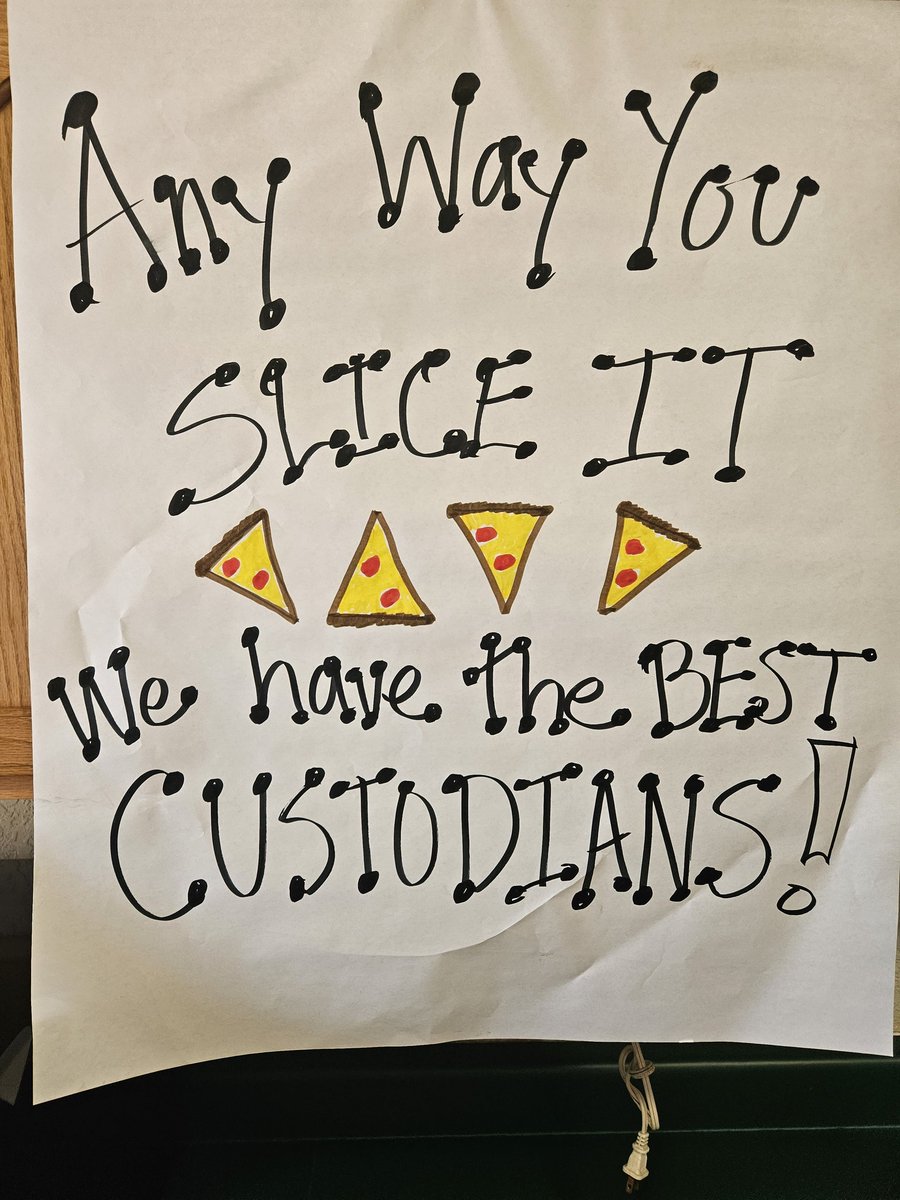 Any Way You
SLICE IT
We have the BEST
CUSTODIANS!